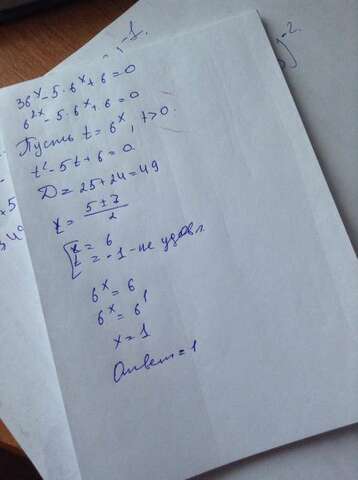 36^x - 5·6^x + 6 = 0
6^2x - 5·6^x + 6 = 0
Пусть t = 6^x, t>0.
t² - 5t + 6 = 0.
D = 25+24 = 49
t = (5±7)/2
[t = 6
t = -1 - не удовл.
6^x = 6
6^x = 6^1
x = 1
Ответ = 1